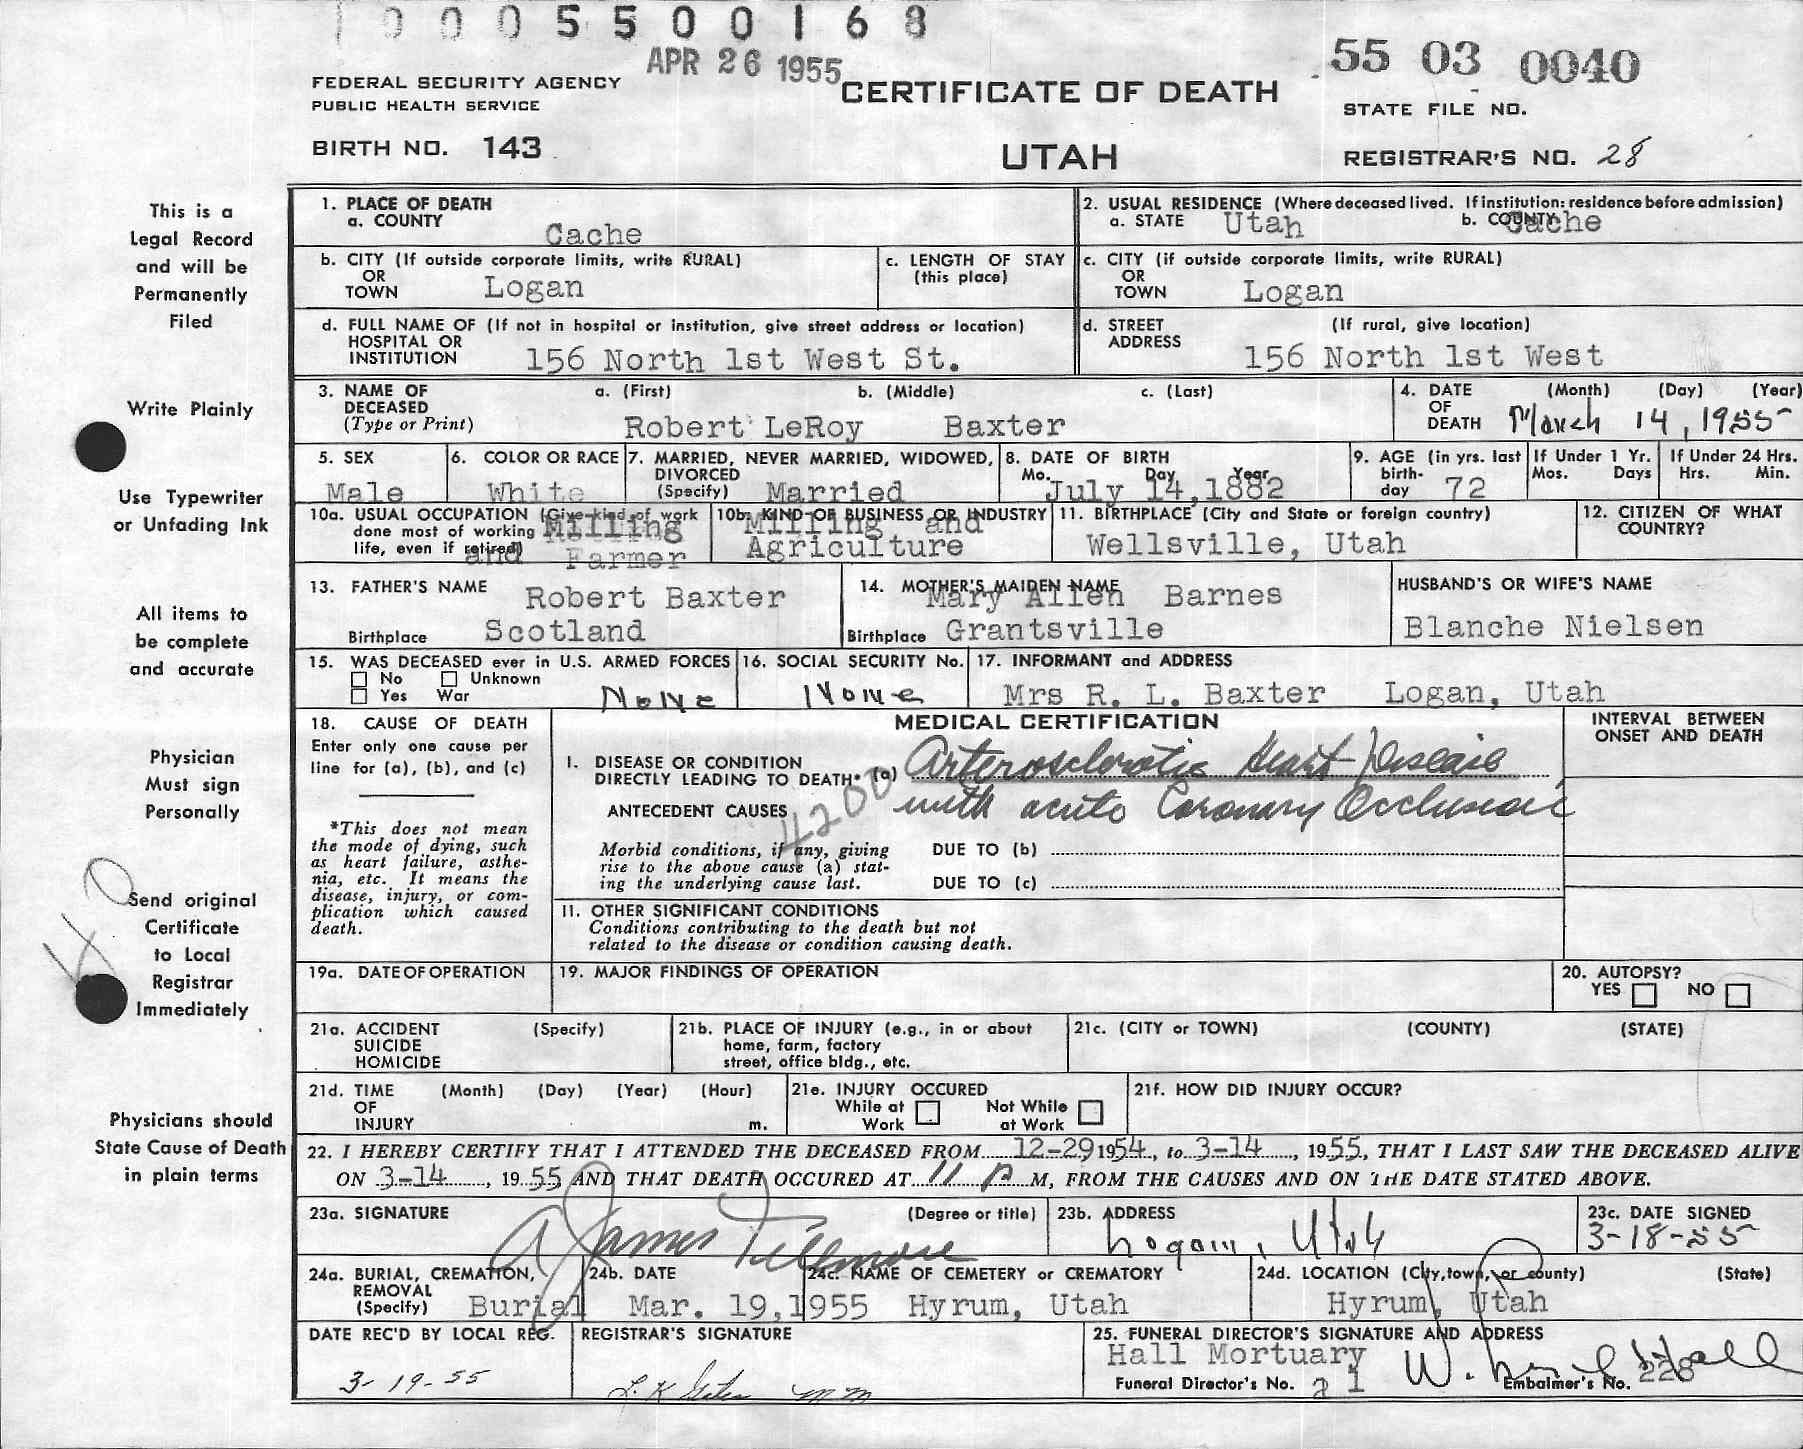 1 0 0 0 5 5 0 0 1 6 8
APR 26 1955
55 03 0040
FEDERAL SECURITY AGENCY
PUBLIC HEALTH SERVICE
CERTIFICATE OF DEATH
STATE FILE NO.
BIRTH NO. 143
UTAH
REGISTRAR'S NO. 28
This is a
Legal Record
and will be
Permanently
Filed
Write Plainly
Use Typewriter
or Unfading Ink
All items to
be complete
and accurate
Physician
Must sign
Personally
Send original
Certificate
to Local
Registrar
Immediately
Physicians should
State Cause of Death
in plain terms
1. PLACE OF DEATH
a. COUNTY
Cache
2. USUAL RESIDENCE (Where deceased lived. If institution: residence before admission)
a. STATE Utah b. COUNTY Cache
b. CITY (If outside corporate limits, write RURAL)
OR
TOWN Logan
c. LENGTH OF STAY
(this place)
c. CITY (if outside corporate limits, write RURAL)
OR
TOWN Logan
d. FULL NAME OF (If not in hospital or institution, give street address or location)
HOSPITAL OR
INSTITUTION 156 North 1st West St.
d. STREET (If rural, give location)
ADDRESS
156 North 1st West
3. NAME OF DECEASED
(Type or Print)
a. (First) b. (Middle) c. (Last)
Robert LeRoy Baxter
4. DATE (Month) (Day) (Year)
OF
DEATH March 14, 1955
5. SEX
Male
6. COLOR OR RACE
White
7. MARRIED, NEVER MARRIED, WIDOWED,
DIVORCED
(Specify) Married
8. DATE OF BIRTH
Mo. Day Year
July 14, 1882
9. AGE (in yrs. last
birth-
day 72
If Under 1 Yr.
Mos. Days
If Under 24 Hrs.
Hrs. Min.
10a. USUAL OCCUPATION (Give kind of work
done most of working
life, even if retired)
Milling
and Farmer
10b. KIND OF BUSINESS OR INDUSTRY
Milling and
Agriculture
11. BIRTHPLACE (City and State or foreign country)
Wellsville, Utah
12. CITIZEN OF WHAT
COUNTRY?
13. FATHER'S NAME Robert Baxter
Birthplace Scotland
14. MOTHER'S MAIDEN NAME
Mary Allen Barnes
Birthplace Grantsville
HUSBAND'S OR WIFE'S NAME
Blanche Nielsen
15. WAS DECEASED ever in U.S. ARMED FORCES
No Unknown
Yes War None
16. SOCIAL SECURITY No.
None
17. INFORMANT and ADDRESS
Mrs R. L. Baxter Logan, Utah
18. CAUSE OF DEATH
Enter only one cause per
line for (a), (b), and (c)
*This does not mean
the mode of dying, such
as heart failure, asthe-
nia, etc. It means the
disease, injury, or com-
plication which caused
death.
MEDICAL CERTIFICATION
INTERVAL BETWEEN
ONSET AND DEATH
I. DISEASE OR CONDITION
DIRECTLY LEADING TO DEATH* (a) Arterosclerotic Heart Disease
ANTECEDENT CAUSES with acute Coronary Occlusion
4200
Morbid conditions, if any, giving
rise to the above cause (a) stat-
ing the underlying cause last.
DUE TO (b)
DUE TO (c)
II. OTHER SIGNIFICANT CONDITIONS
Conditions contributing to the death but not
related to the disease or condition causing death.
19a. DATE OF OPERATION
19. MAJOR FINDINGS OF OPERATION
20. AUTOPSY?
YES NO
21a. ACCIDENT (Specify)
SUICIDE
HOMICIDE
21b. PLACE OF INJURY (e.g., in or about
home, farm, factory
street, office bldg., etc.
21c. (CITY or TOWN) (COUNTY) (STATE)
21d. TIME (Month) (Day) (Year) (Hour)
OF
INJURY m.
21e. INJURY OCCURED
While at Work
Not While at Work
21f. HOW DID INJURY OCCUR?
22. I HEREBY CERTIFY THAT I ATTENDED THE DECEASED FROM 12-29 1954, to 3-14, 1955, THAT I LAST SAW THE DECEASED ALIVE
ON 3-14, 1955 AND THAT DEATH OCCURED AT 11 P M, FROM THE CAUSES AND ON THE DATE STATED ABOVE.
23a. SIGNATURE (Degree or title)
James Fillmore
23b. ADDRESS
Logan, Utah
23c. DATE SIGNED
3-18-55
24a. BURIAL, CREMATION,
REMOVAL
(Specify) Burial
24b. DATE
Mar. 19, 1955
24c. NAME OF CEMETERY or CREMATORY
Hyrum, Utah
24d. LOCATION (City, town, or county) (State)
Hyrum, Utah
DATE REC'D BY LOCAL REG.
3-19-55
REGISTRAR'S SIGNATURE
25. FUNERAL DIRECTOR'S SIGNATURE AND ADDRESS
Hall Mortuary
W. Hall
Funeral Director's No. 21
Embalmer's No. 228